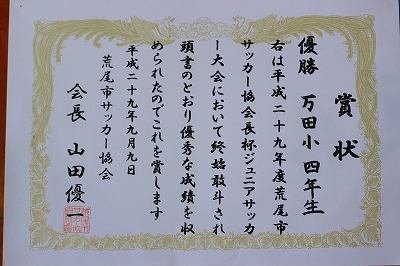 賞状
優勝 万田小四年生
右は平成二十九年度荒尾市
サッカー協会長杯ジュニアサッカ
ー大会において終始敢斗され
頭書のとおり優秀な成績を収
められたのでこれを賞します
平成二十九年九月九日
荒尾市サッカー協会
会長 山田優一